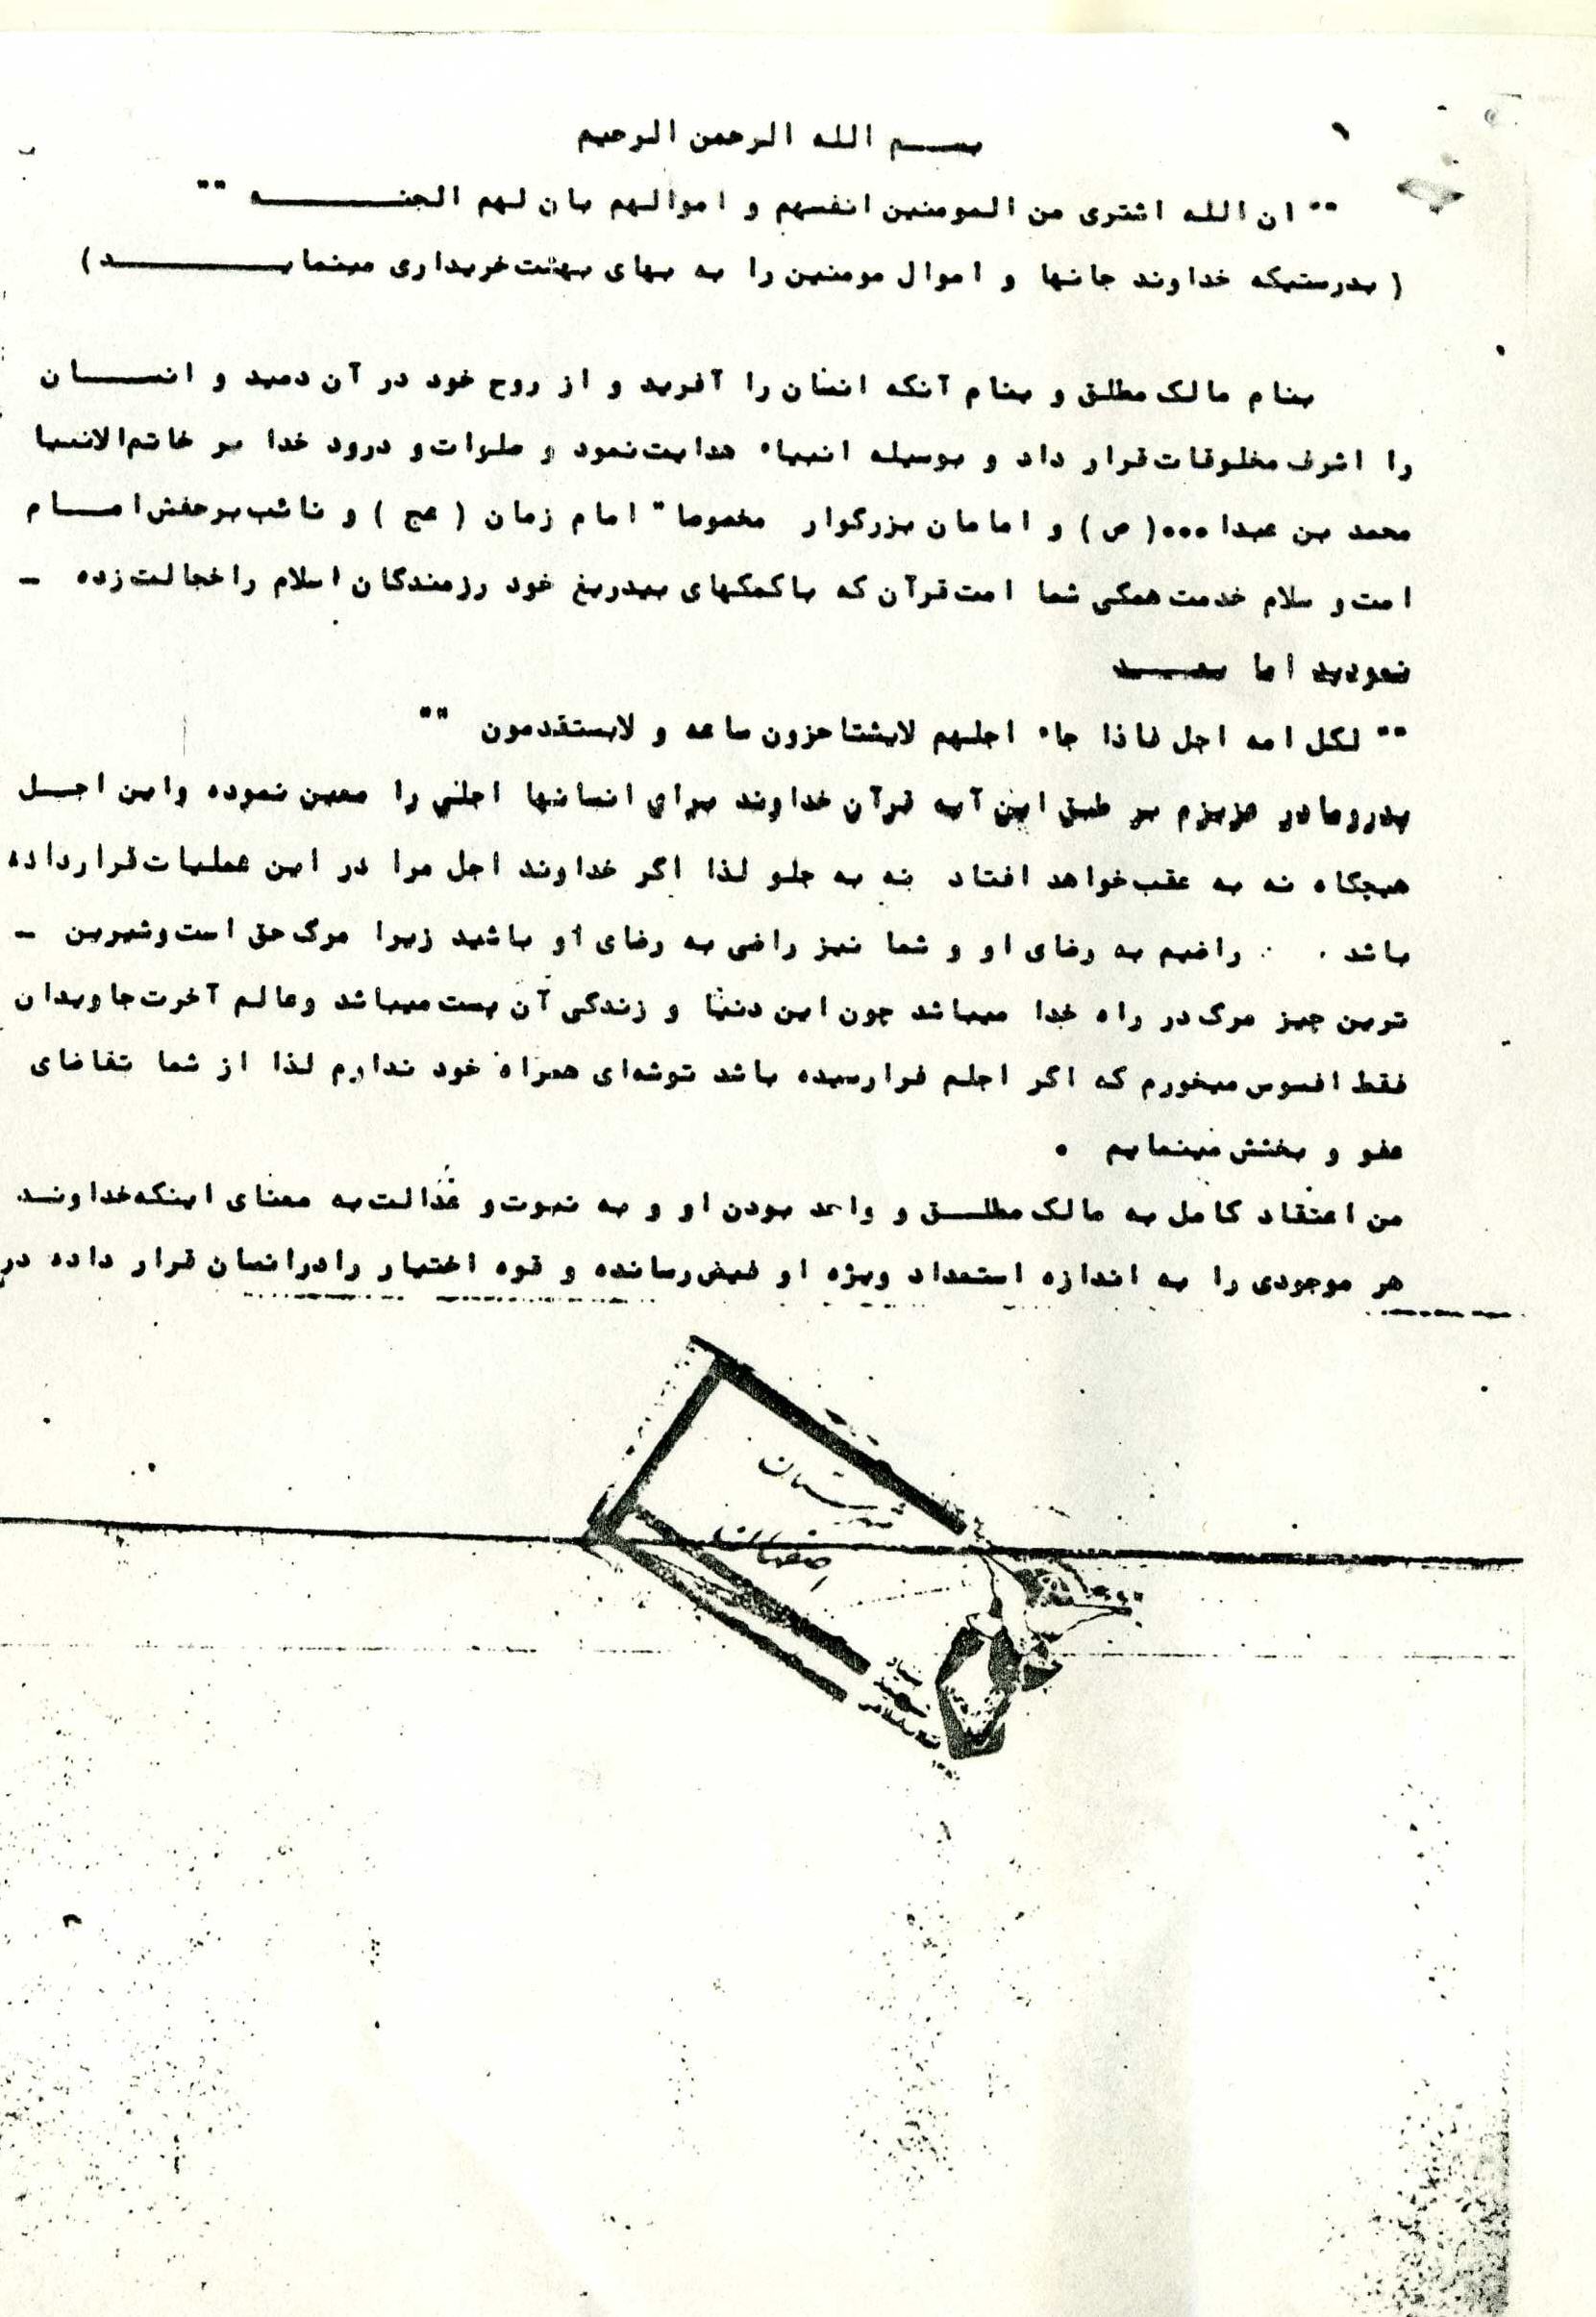 ۱
بســـم الله الرحمن الرحیم
"" ان الله اشتری من المومنین انفسهم و اموالهم بان لهم الجنـــــــه ""
( بدرستیکه خداوند جانها و اموال مومنین را به بهای بهشت خریداری مینمایــــــــد )
بنام مالک مطلق و بنام آنکه انسان را آفرید و از روح خود در آن دمید و انســـان
را اشرف مخلوقات قرار داد و بوسیله انبیاء هدایت نمود و صلوات و درود خدا بر خاتم الانبیا
محمد بن عبدا ...( ص ) و امامان بزرگوار مخصوصا" امام زمان ( عج ) و نائب برحقش امـــام
امت و سلام خدمت همگی شما امت قرآن که با کمکهای بیدریغ خود رزمندگان اسلام را خجالت زده -
نمودید اما بعـــد
"" لکل امه اجل فاذا جاء اجلهم لایشتاخرون ساعه و لایستقدمون ""
پدر و مادر عزیزم بر طبق این آیه قرآن خداوند برای انسانها اجلی را معین نموده و این اجـــل
هیچگاه نه به عقب خواهد افتاد نه به جلو لذا اگر خداوند اجل مرا در این عملیات قرار داده
باشد . راضیم به رضای او و شما نیز راضی به رضای او باشید زیرا مرگ حق است و شیرین -
ترین چیز مرگ در راه خدا میباشد چون این دنیا و زندگی آن پست میباشد و عالم آخرت جاویدان
فقط افسوس میخورم که اگر اجلم فرا رسیده باشد توشه‌ای همراه خود ندارم لذا از شما تقاضای
عفو و بخشش مینمایم .
من اعتقاد کامل به مالک مطلـــق و واحد بودن او و به نبوت و عدالت به معنای اینکه خداونـــد
هر موجودی را به اندازه استعداد ویژه او فیض رسانده و قوه اختیار را در انسان قرار داده در
بنیاد
شهید